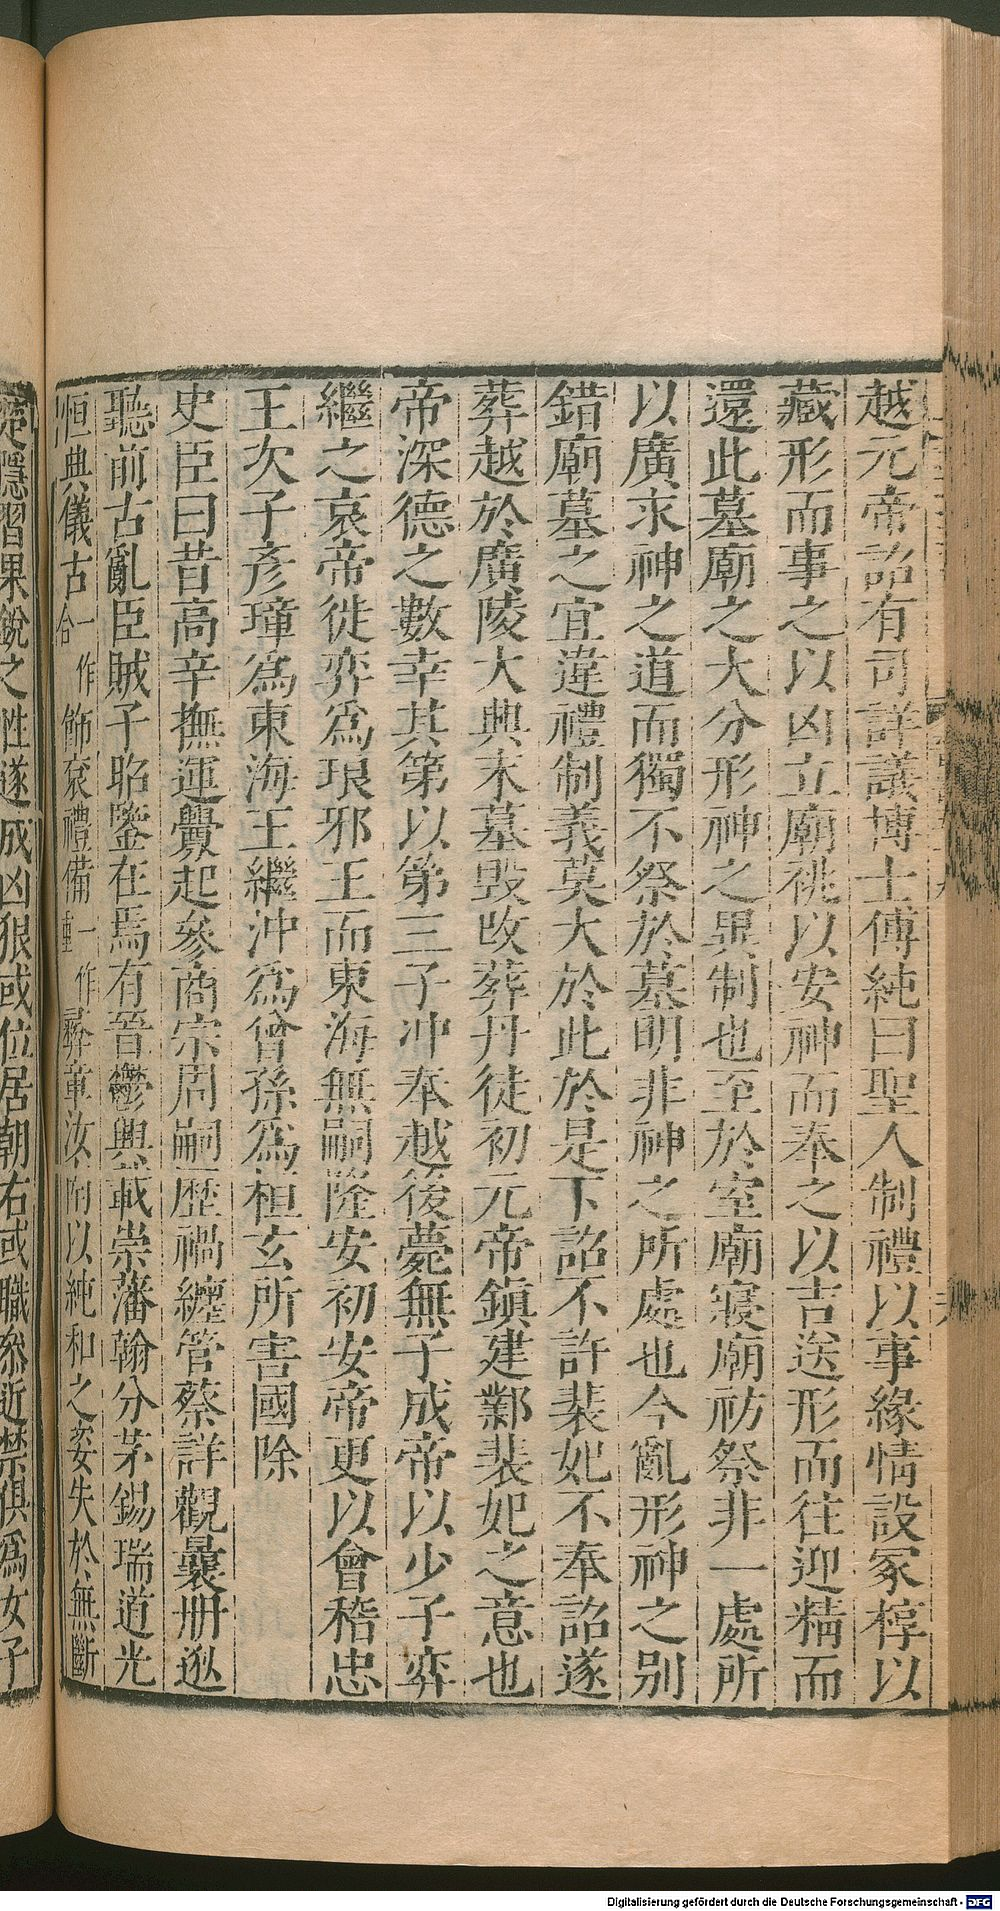 越元帝詔有司詳議博士傅純曰聖人制禮以事緣情設冢椁以
藏形而事之以凶立廟祧以安神而奉之以吉送形而往迎精而
還此墓廟之大分形神之異制也至於室廟寢廟祊祭非一處所
以廣求神之道而獨不祭於墓明非神之所處也今亂形神之別
錯廟墓之宜違禮制義莫大於此於是下詔不許裴妃不奉詔遂
葬越於廣陵大興末墓毀改葬丹徒初元帝鎮建鄴裴妃之意也
帝深德之數幸其第以第三子冲奉越後薨無子成帝以少子弈
繼之哀帝徙弈為琅邪王而東海無嗣隆安初安帝更以會稽忠
王次子彥璋為東海王繼沖為曾孫為桓玄所害國除
史臣曰昔高辛撫運釁起參商宗周嗣歷禍纏管蔡詳觀曩冊逖
聽前古亂臣賊子昭鑒在焉有晉鬱興載崇藩翰分茅錫瑞道光
恒典儀古一作台飾袞禮備一作重彞章汝南以純和之姿失於無斷
楚隱習果銳之性遂成凶狠或位居朝右或職參近禁俱為女子
Digitalisierung gefördert durch die Deutsche Forschungsgemeinschaft - DFG